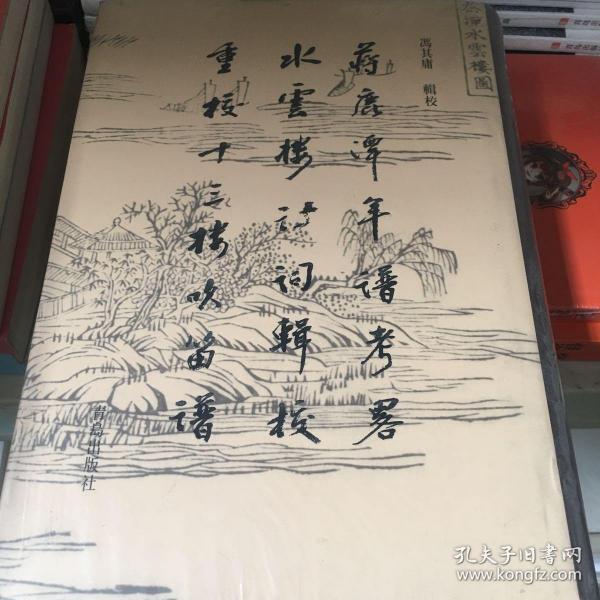 蔣鹿潭年譜考畧
水雲樓詩詞輯校
重校十三樓吹笛譜
馮其庸 輯校
青島出版社
水雲樓圖
孔夫子旧书网
www.kongfz.com